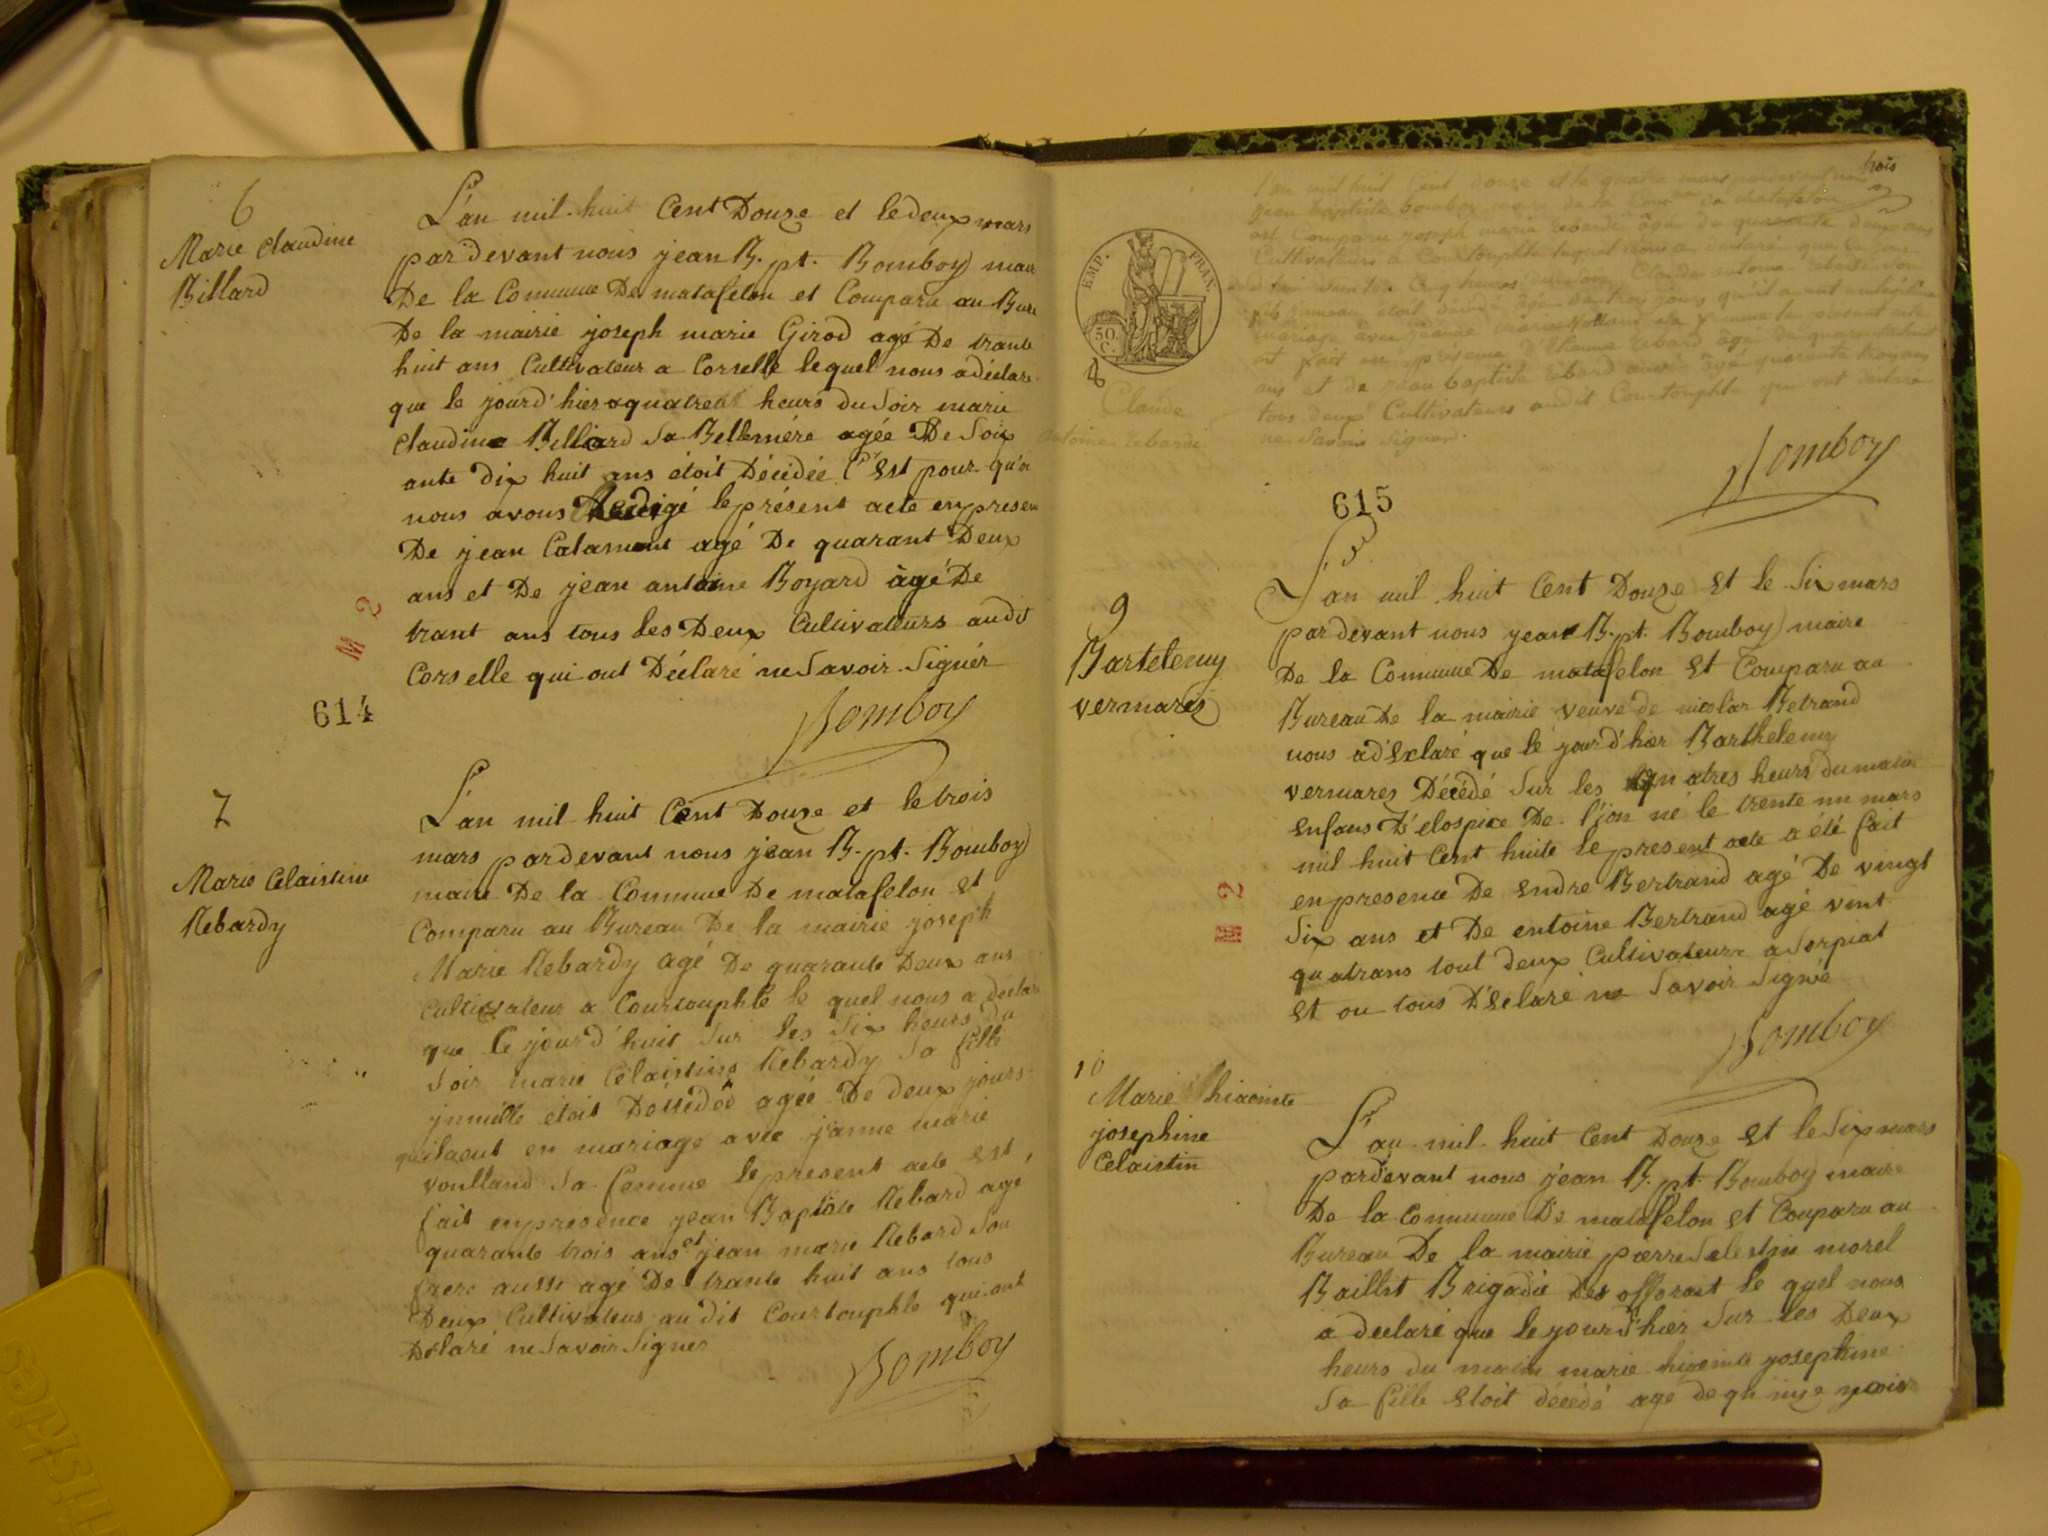 6
Marie Claudine
Billard
L'an mil huit Cent Douze et le deux mars
pardevant nous jean B. pt. Bomboy) mair
De la Commune De matafelon et Comparu au Bure
De la mairie joseph marie Girod agé De trante
huit ans Cultivateur a Corselle lequel nous a déclaré
que le jourd'hier a quatre heurs du soir marie
Claudine Billiard Sa Bellemére agée De Soix
ante dix huit ans étoit Décédée C'est pour qu'oi
nous avons Redigé le présent acte en presen
De jean Calamant agé De quarant Deux
ans et De jean antoine Boyard àgé De
trant ans tous les Deux Cultivateurs audit
Corselle qui ont Déclaré ne Savoir Signér
M 2
614
Bomboy
7
Marie Celaistine
Rebardy
L'an mil huit Cent Douze et le trois
mars pardevant nous jean B. pt. Bomboy)
maire De la Commune De matafelon et
Comparu au Bureau De la mairie joseph
Marie Rebardy agé De quarante Deux ans
Cultivateur a Courtouphle le quel nous a déclaré
que le jourd'huit Sur les Six heurs du
Soir marie Celaistine Rebardy Sa fille
jumélle étoit Désédéé agée De deux jours
qu'ilaeut en mariage avec jeanne marie
voulland Sa femme le present acte est
fait en présence jean Baptiste Rebard agé
quarante trois ans et jean marie Rebard Son
frere aussi agé De trante huit ans tous
Deux Cultivateurs au dit Courtouphle qui ont
Déclaré ne Savoir Signer
Bomboy
trois
EMP. FRAN.
50 C.
8
Claude
antoine Rebardi
L'an mil huit Cent douze et le quatre mars pardevant nous
jean baptiste bomboy maire de la Com de matafelon
est Comparu joseph marie Rebardi âgé de quarante deux ans
Cultivateur à Courtouphle lequel nous a declaré que le jour
Claude antoine
ans et de jean baptiste Rebard aussi âgé quarante trois ans
tous deux Cultivateurs audit Courtouphle qui ont declaré
ne Savoir Signer.
Bomboy
615
9
Bartelemy
vermares
L'an mil huit Cent Douze Et le Six mars
pardevant nous jean B. pt. Bomboy) maire
De la Commune De matafelon Et Comparu au
Bureau De la mairie veuve de nicolas Betrand
nous a déclaré que le jourd'hier Barthelemy
vermares Décédé Sur les quatres heurs du matin
Enfans D'elospice De l'jon né le trente un mars
mil huit Cent huite le present acte a été fait
en presence De Endre Bertrand agé De vingt
Six ans et De entoine Bertrand agé vint
quatrans tout deux Cultivateurs a Serpiat
Et on tous D'éclaré ne Savoir Signé
M 2
Bomboy
10
Marie hiacinte
josephine
Celaistin
L'an mil huit Cent Douze Et le Six mars
pardevant nous jean B. pt. Bomboy maire
De la Commune De matafelon Et Conparu au
Bureau De la mairie pierre Selestin morel
Baillet Brigadié Des offorait le quel nous
a declaré que le jourd'hier Sur les Deux
heurs du matin marie hiacinte josephine
Sa fille Etoit décédé agé de quinze mois